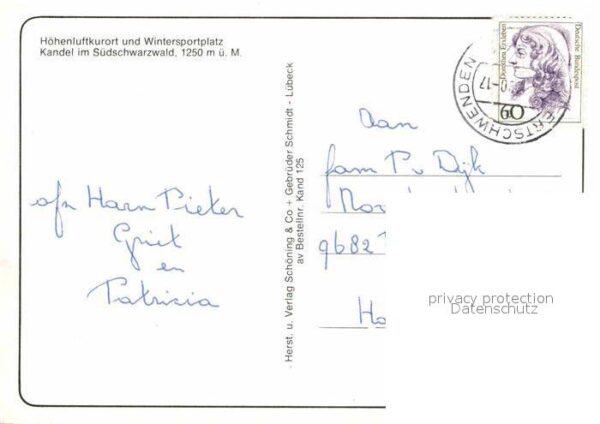 Höhenluftkurort und Wintersportplatz
Kandel im Südschwarzwald, 1250 m ü. M.
Harm Pieter
Griet
en
Patricia
Herst. u. Verlag Schöning & Co + Gebrüder Schmidt - Lübeck
av Bestellnr. Kand 125
Dorothea Erxleben
Deutsche Bundespost
60
17
ERTSCHWENDEN
Aan
fam P. v. Dijk
9682
privacy protection
Datenschutz